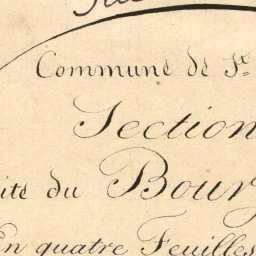 Commune de St
Section
ite du Bour
En quatre Feuilles